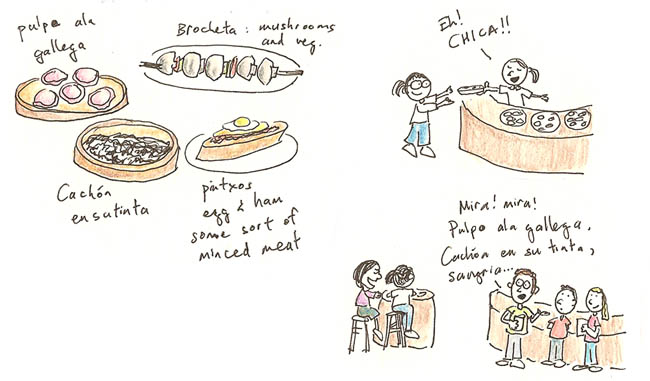 pulpo ala
gallega
Brocheta : mushrooms
and veg.
Cachón
en su tinta
pintxos
egg & ham
some sort of
minced meat
Eh!
CHICA!!
Mira! mira!
Pulpo ala gallega,
Cachón en su tinta,
sangria...